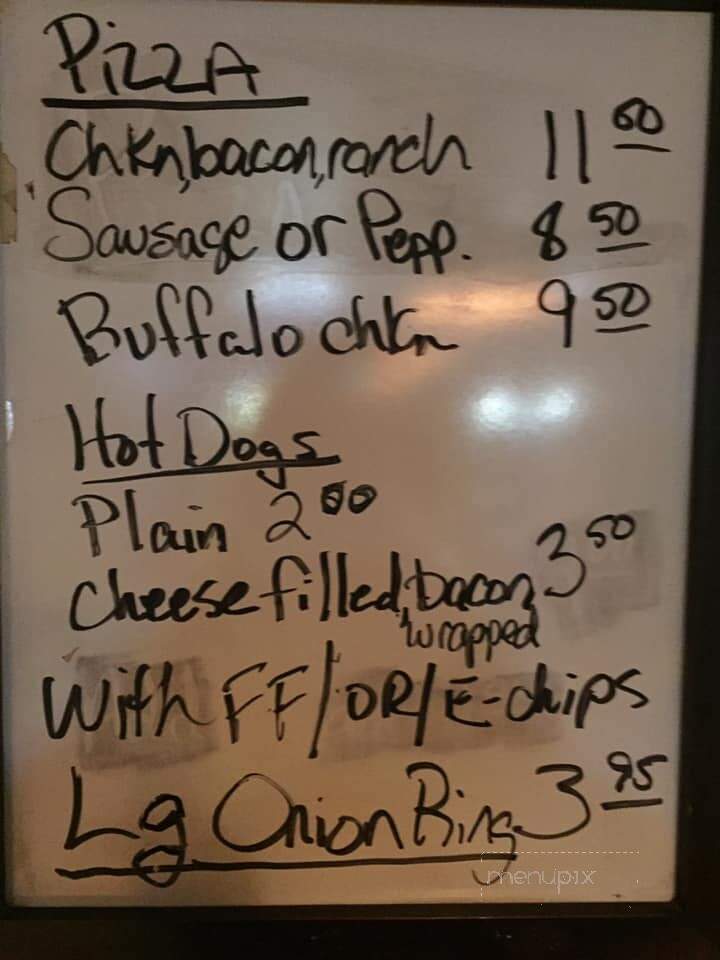 PizzA
Chkn,bacon,ranch 11 50
Sausage or Pepp. 8 50
Buffalo chkn 9 50
Hot Dogs
Plain 2 00
Cheese filled,bacon 3 50
wrapped
With FF/OR/E-chips
Lg Onion Ring 3 95
menupix